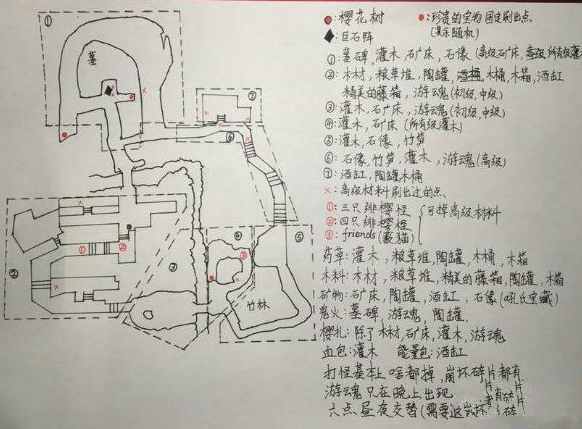 墓
竹林
①
②
③
④
⑤
⑥
⑦
:樱花树
:巨石阵
:珍贵的宝物固定刷出点
(其余随机)
①:墓碑,灌木,石矿床,石像(高级石矿床,高级所有级灌木
②:木材,粮草堆,陶罐,木桶,木箱,酒缸
精美的藤箱,游魂(初级,中级)
③:灌木,石矿床,游魂(初级,中级)
④:灌木,矿床(所有级灌木)
⑤:灌木,石像,竹笋
⑥:石像,竹笋,灌木,游魂(高级)
⑦:酒缸,陶罐木桶
×:高级材料刷出过的点
①:三只绯樱怪
②:四只绯樱怪
可掉高级材料
③:friends(薮猫)
药草:灌木,粮草堆,陶罐,木桶,木箱
木料:木材,粮草堆,精美的藤箱,陶罐,木箱
矿物:石矿床,陶罐,酒缸,石像
鬼火:墓碑,游魂,陶罐,
樱札:除了木材,矿床,灌木,游魂
血包:灌木 能量包:酒缸
打怪基本上啥都掉,崩坏碎片都有
游魂只在晚上出现
六点昼夜交替(需要这崩坏